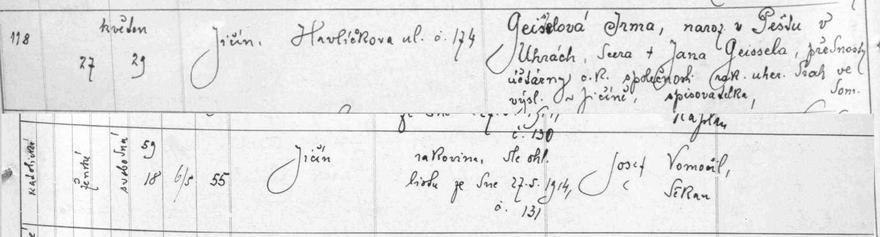 118
květen
27 29
Jičín, Havlíčkova ul. č. 174
Geisslová Irma, naroz. v Peštu v
Uhrách, dcera + Jana Geissela, přednosty
účtárny c.k. společnosti rak. uher. drah ve
výsl. v Jičíně, spisovatelka,
kaplan
č. 130
katolické
ženské
svobodná
59
18 6/5 55
Jičín
rakovina, dle ohl.
listu ze dne 27.5. 1914,
č. 131
Josef Vomočil,
děkan